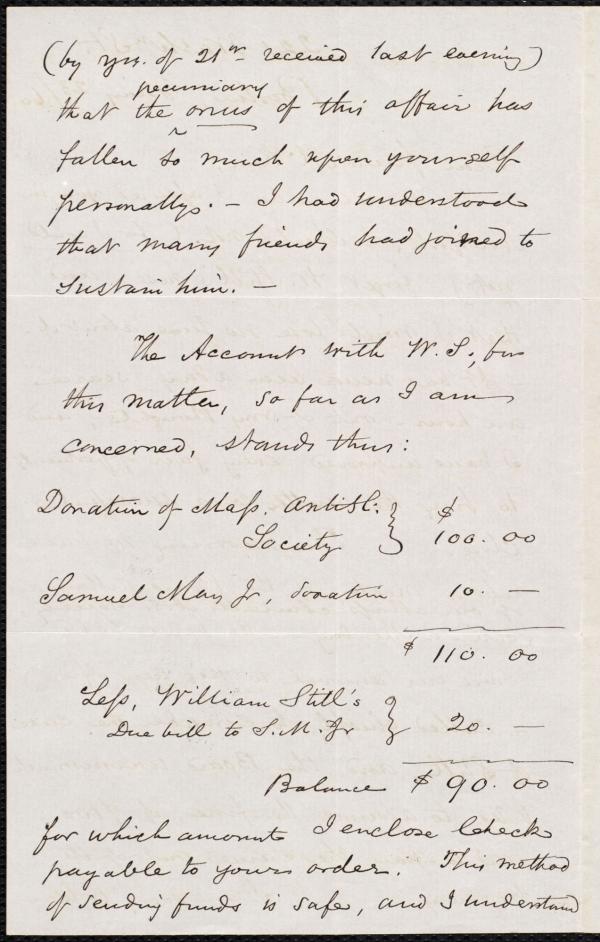 (by yrs. of 21st received last evening)
pecuniary
that the onus of this affair has
fallen so much upon yourself
personally. – I had understood
that many friends had joined to
sustain him. –
The Account with W. S., for
this matter, so far as I am
concerned, stands thus:
Donation of Mass. Antisl. } $
Society 100. 00
Samuel May Jr, donation 10. —
$ 110. 00
Less, William Still's
Due bill to S. M. Jr } 20. —
Balance $ 90. 00
for which amount I enclose Check
payable to your order. This method
of sending funds is safe, and I understand